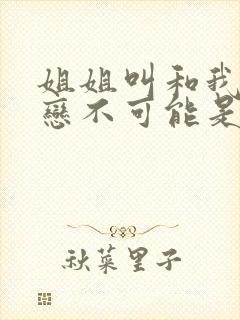 姐姐叫和我
戀不可能是
秋菜里子